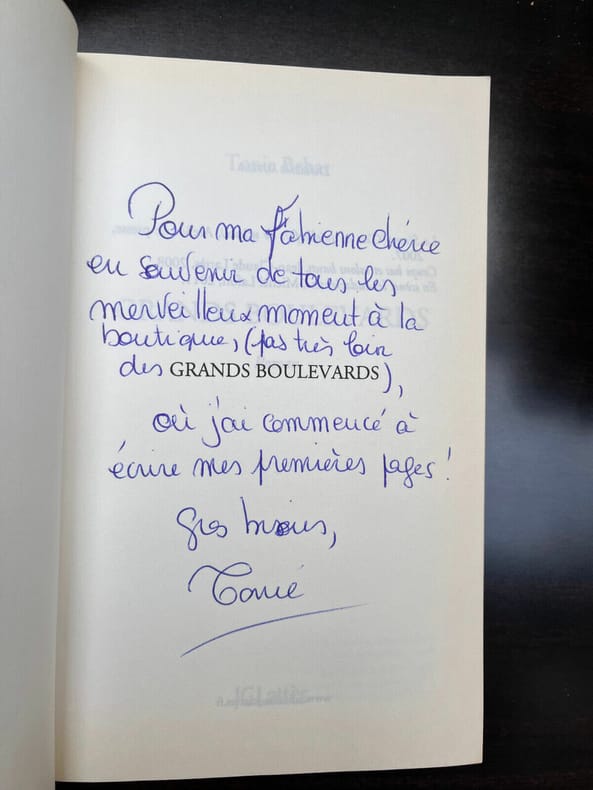 Pour ma Fabienne chérie
en souvenir de tous les
merveilleux moment à la
boutique, (pas très loin
des GRANDS BOULEVARDS),
où j'ai commencé à
écrire mes premières pages !
Gros bisous,